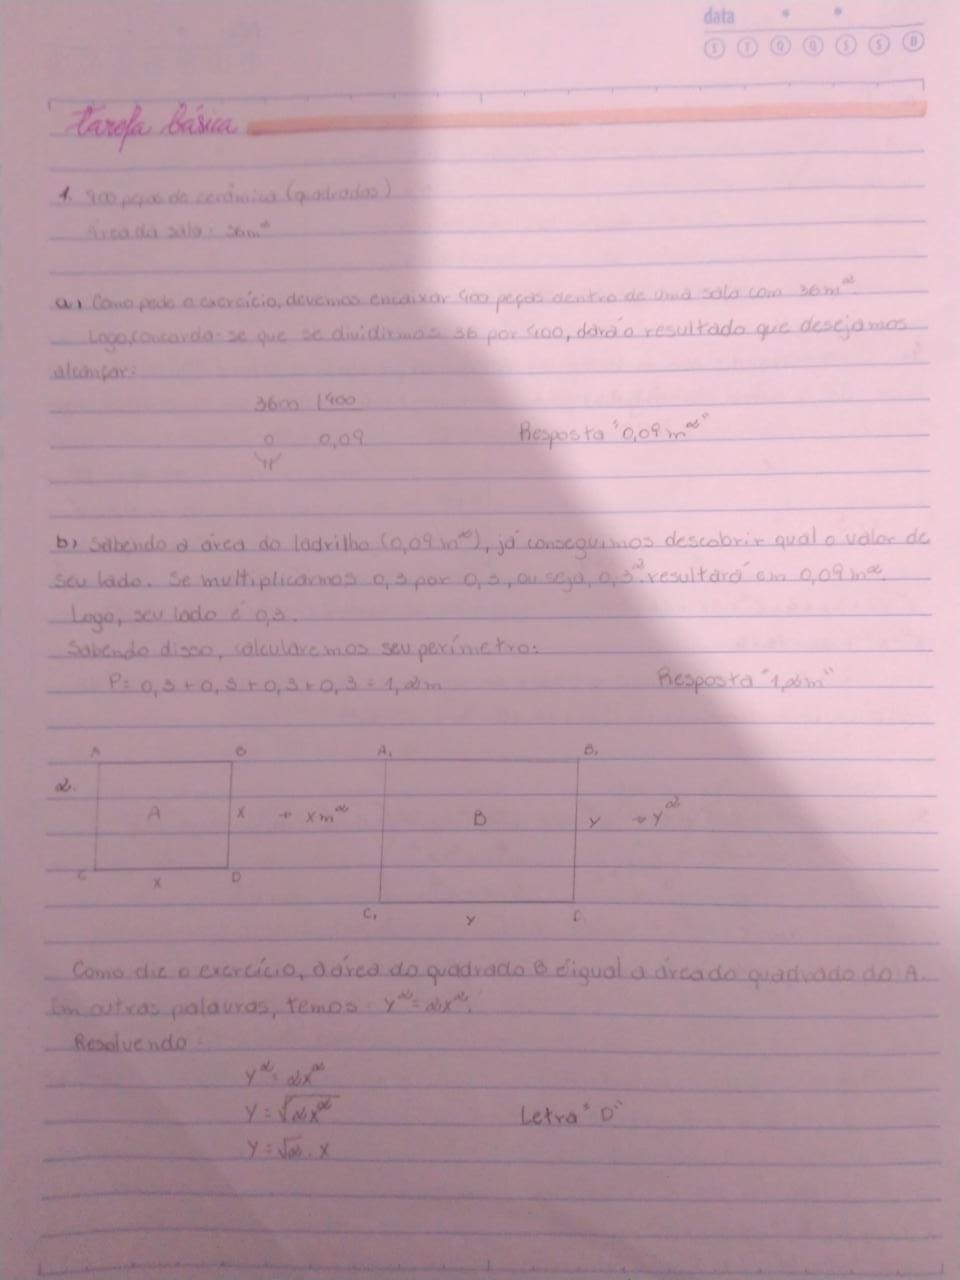 data
S T Q Q S S D
tarefa básica
1. 400 peças de cerâmica (quadrados)
Área da sala: 36m²
a) Como pede o exercício, devemos encaixar 400 peças dentro de uma sala com 36m².
Logo, concorda-se que se dividirmos 36 por 400, dará o resultado que desejamos
alcançar:
3600 400
0 0,09
Resposta "0,09m²"
b) Sabendo a área do ladrilho (0,09m²), já conseguimos descobrir qual o valor de
seu lado. Se multiplicarmos 0,3 por 0,3, ou seja, 0,3² resultará em 0,09m².
Logo, seu lado é 0,3.
Sabendo disso, calcularemos seu perímetro:
P= 0,3 + 0,3 + 0,3 + 0,3 = 1,2m Resposta "1,2m"
A B A₁ B₁
2. A X → Xm² B Y → Y²
C X D C₁ Y
Como diz o exercício, a área do quadrado B é igual a área do quadrado do A.
Em outras palavras, temos: Y²=2X².
Resolvendo:
Y²=2X²
Y=√2X² Letra "D"
Y=√2.X